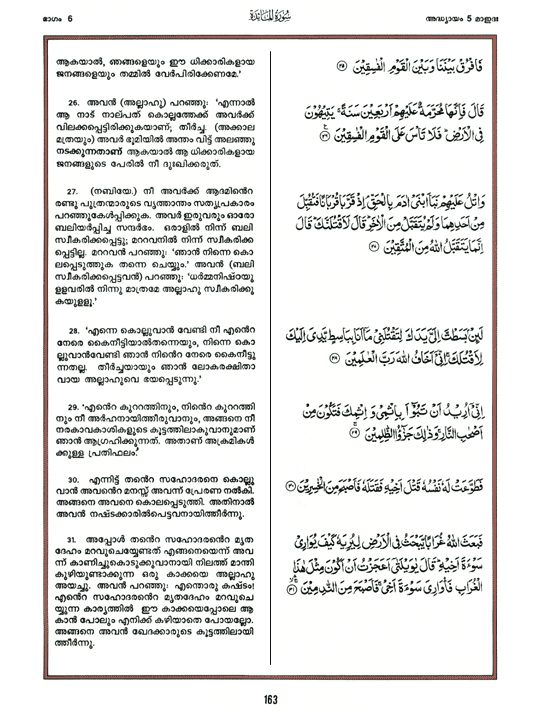 ഭാഗം 6
سُورَةُ المَائدة
അദ്ധ്യായം 5 മാഇദഃ
ആകയാൽ, ഞങ്ങളെയും ഈ ധിക്കാരികളായ
ജനങ്ങളെയും തമ്മിൽ വേർപിരിക്കേണമേ.'
فَافْرُقْ بَيْنَنَا وَبَيْنَ الْقَوْمِ الْفٰسِقِيْنَ ﴿٢٥﴾
26. അവൻ (അല്ലാഹു) പറഞ്ഞു: 'എന്നാൽ
ആ നാട് നാല്പത് കൊല്ലത്തേക്ക് അവർക്ക്
വിലക്കപ്പെട്ടിരിക്കുകയാണ്; തീർച്ച. (അക്കാല
മത്രയും) അവർ ഭൂമിയിൽ അന്തം വിട്ട് അലഞ്ഞു
നടക്കുന്നതാണ് ആകയാൽ ആ ധിക്കാരികളായ
ജനങ്ങളുടെ പേരിൽ നീ ദുഃഖിക്കരുത്.
قَالَ فَاِنَّهَا مُحَرَّمَةٌ عَلَيْهِمْ اَرْبَعِيْنَ سَنَةً ۚ يَتِيْهُوْنَ
فِى الْاَرْضِ ؕ فَلَا تَاْسَ عَلَى الْقَوْمِ الْفٰسِقِيْنَ ﴿٢٦﴾
27. (നബിയേ.) നീ അവർക്ക് ആദമിൻെറ
രണ്ടു പുത്രന്മാരുടെ വൃത്താന്തം സത്യപ്രകാരം
പറഞ്ഞുകേൾപ്പിക്കുക. അവർ ഇരുവരും ഓരോ
ബലിയർപ്പിച്ച സന്ദർഭം. ഒരാളിൽ നിന്ന് ബലി
സ്വീകരിക്കപ്പെട്ടു; മററവനിൽ നിന്ന് സ്വീകരിക്ക
പ്പെട്ടില്ല. മററവൻ പറഞ്ഞു: 'ഞാൻ നിന്നെ കൊ
ലപ്പെടുത്തുക തന്നെ ചെയ്യും.' അവൻ (ബലി
സ്വീകരിക്കപ്പെട്ടവൻ) പറഞ്ഞു: 'ധർമ്മനിഷ്ഠയു
ള്ളവരിൽ നിന്നു മാത്രമേ അല്ലാഹു സ്വീകരിക്കു
കയുള്ളൂ.'
وَاتْلُ عَلَيْهِمْ نَبَاَ ابْنَىْ اٰدَمَ بِالْحَقِّ اِذْ قَرَّبَا قُرْبَانًا فَتُقُبِّلَ
مِنْ اَحَدِهِمَا وَلَمْ يُتَقَبَّلْ مِنَ الْاٰخَرِ قَالَ لَاَقْتُلَنَّكَ قَالَ
اِنَّمَا يَتَقَبَّلُ اللّٰهُ مِنَ الْمُتَّقِيْنَ ﴿٢٧﴾
28. 'എന്നെ കൊല്ലുവാൻ വേണ്ടി നീ എൻെറ
നേരെ കൈനീട്ടിയാൽതന്നെയും, നിന്നെ കൊ
ല്ലുവാൻവേണ്ടി ഞാൻ നിൻെറ നേരെ കൈനീട്ടു
ന്നതല്ല. തീർച്ചയായും ഞാൻ ലോകരക്ഷിതാ
വായ അല്ലാഹുവെ ഭയപ്പെടുന്നു.'
لَئِنْۢ بَسَطْتَّ اِلَىَّ يَدَكَ لِتَقْتُلَنِىْ مَاۤ اَنَا بِبَاسِطٍ يَّدِىَ اِلَيْكَ
لِاَقْتُلَكَ ۚ اِنِّىْۤ اَخَافُ اللّٰهَ رَبَّ الْعٰلَمِيْنَ ﴿٢٨﴾
29. 'എൻെറ കുററത്തിനും, നിൻെറ കുററത്തി
നും നീ അർഹനായിത്തീരുവാനും, അങ്ങനെ നീ
നരകാവകാശികളുടെ കൂട്ടത്തിലാകുവാനുമാണ്
ഞാൻ ആഗ്രഹിക്കുന്നത്. അതാണ് അക്രമികൾ
ക്കുള്ള പ്രതിഫലം.'
اِنِّىْۤ اُرِيْدُ اَنْ تَبُوْٓءَاۡ بِاِثْمِىْ وَاِثْمِكَ فَتَكُوْنَ مِنْ
اَصْحٰبِ النَّارِ وَذٰلِكَ جَزٰٓؤُا الظّٰلِمِيْنَ ﴿٢٩﴾
30. എന്നിട്ട് തൻെറ സഹോദരനെ കൊല്ലു
വാൻ അവൻെറ മനസ്സ് അവന്ന് പ്രേരണ നൽകി.
അങ്ങനെ അവനെ കൊലപ്പെടുത്തി. അതിനാൽ
അവൻ നഷ്ടക്കാരിൽപെട്ടവനായിത്തീർന്നു.
فَطَوَّعَتْ لَهٗ نَفْسُهٗ قَتْلَ اَخِيْهِ فَقَتَلَهٗ فَاَصْبَحَ مِنَ الْخٰسِرِيْنَ ﴿٣٠﴾
31. അപ്പോൾ തൻെറ സഹോദരൻെറ മൃത
ദേഹം മറവുചെയ്യേണ്ടത് എങ്ങനെയെന്ന് അവ
ന്ന് കാണിച്ചുകൊടുക്കുവാനായി നിലത്ത് മാന്തി
കുഴിയുണ്ടാക്കുന്ന ഒരു കാക്കയെ അല്ലാഹു
അയച്ചു. അവൻ പറഞ്ഞു: എന്തൊരു കഷ്ടം!
എൻെറ സഹോദരൻെറ മൃതദേഹം മറവുചെ
യ്യുന്ന കാര്യത്തിൽ ഈ കാക്കയെപ്പോലെ ആ
കാൻ പോലും എനിക്ക് കഴിയാതെ പോയല്ലോ.
അങ്ങനെ അവൻ ഖേദക്കാരുടെ കൂട്ടത്തിലായി
ത്തീർന്നു.
فَبَعَثَ اللّٰهُ غُرَابًا يَّبْحَثُ فِى الْاَرْضِ لِيُرِيَهٗ كَيْفَ يُوَارِىْ
سَوْءَةَ اَخِيْهِ ؕ قَالَ يٰوَيْلَتٰۤى اَعَجَزْتُ اَنْ اَكُوْنَ مِثْلَ هٰذَا
الْغُرَابِ فَاُوَارِىَ سَوْءَةَ اَخِىْ ۚ فَاَصْبَحَ مِنَ النّٰدِمِيْنَ ﴿٣١﴾
163